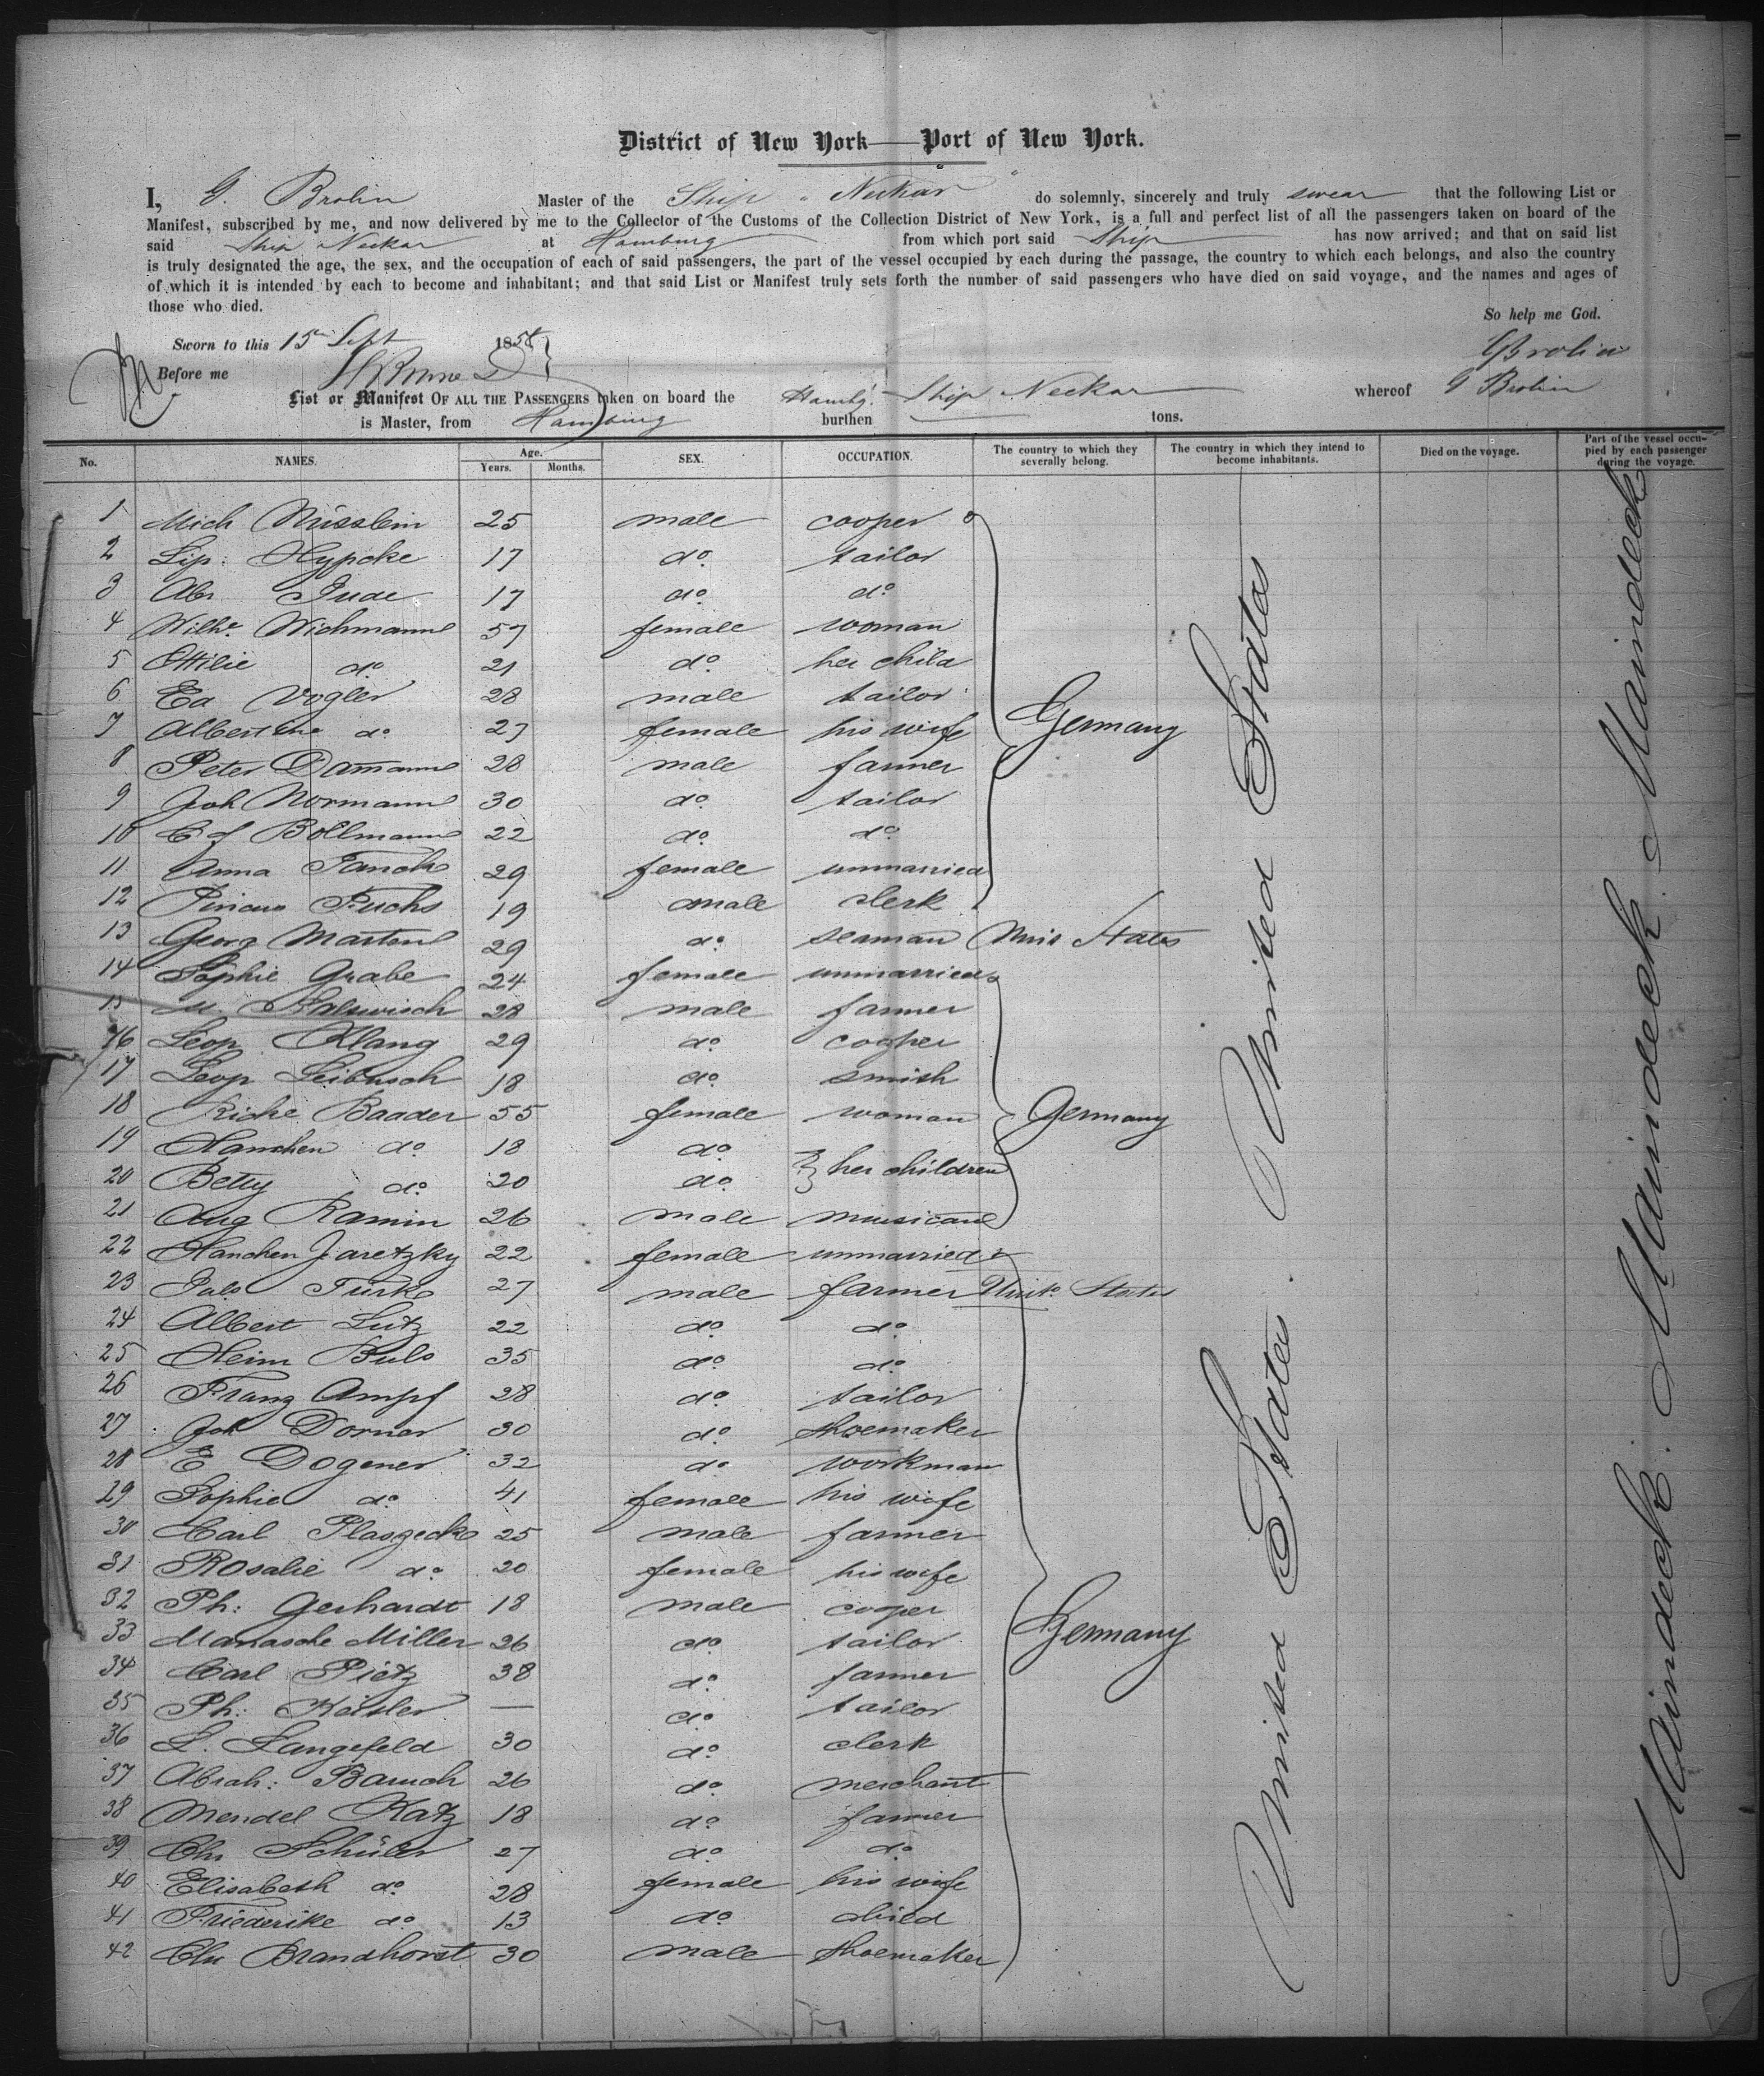 District of New York — Port of New York.
I, G. Brolin Master of the Ship "Neckar" do solemnly, sincerely and truly swear that the following List or
Manifest, subscribed by me, and now delivered by me to the Collector of the Customs of the Collection District of New York, is a full and perfect list of all the passengers taken on board of the
said Ship Neckar at Hamburg from which port said Ship has now arrived; and that on said list
is truly designated the age, the sex, and the occupation of each of said passengers, the part of the vessel occupied by each during the passage, the country to which each belongs, and also the country
of which it is intended by each to become and inhabitant; and that said List or Manifest truly sets forth the number of said passengers who have died on said voyage, and the names and ages of
those who died.
So help me God.
Sworn to this 15 Sept 1858
GBrolin
Before me
List or Manifest OF ALL THE PASSENGERS taken on board the Hambg. Ship Neckar whereof G Brolin
is Master, from Hamburg burthen tons.
No. NAMES. Age. Years. Months. SEX. OCCUPATION. The country to which they severally belong. The country in which they intend to become inhabitants. Died on the voyage. Part of the vessel occupied by each passenger during the voyage.
1 Mich Nüsslein 25 male cooper
2 Lip: Hypcke 17 do. tailor
3 Abr Jude 17 do. do.
4 Wilhe. Wichmann 57 female woman
5 Ottilie do. 21 do. her child
6 Ed Vogler 28 male tailor
7 Albertine do. 27 female his wife Germany
8 Peter Damann 28 male farmer
9 Joh Normann 30 do. tailor
10 C. Bollmann 22 do. do.
11 Anna 29 female unmarried
12 Pincus Fuchs 19 male clerk
13 Georg Martens 29 do. seaman Unit States
14 Sophie Grabe 24 female unmarried
15 M. 28 male farmer
16 Leop Klang 29 do. cooper
17 Leop Leibusch 18 do. smith
18 Ricke Baader 55 female woman Germany
19 Hanchen do. 18 do.
20 Betty do. 20 do. her children
21 Aug Ramin 26 male musican
22 Hanchen Jaretzky 22 female unmarried
23 Juls Türk 27 male farmer Unit. States
24 Albert Lutz 22 do. do.
25 Heinr Buls 35 do. do.
26 Franz Ampf 28 do. tailor
27 Joh Dorner 30 do. shoemaker
28 E Dogener 32 do. workman
29 Sophie do. 41 female his wife
30 Carl Plaszeck 25 male farmer
31 Rosalie do. 20 female his wife
32 Ph: Gerhardt 18 male cooper
33 Manasche Miller 26 do. tailor Germany
34 Carl Pietz 38 do. farmer
35 Ph: Keisler — do. tailor
36 L. Langefeld 30 do. clerk
37 Abrah: Baruch 26 do. merchant
38 Mendel Katz 18 do. farmer
39 Chr Schüler 27 do. do.
40 Elisabeth do. 28 female his wife
41 Friederike do. 13 do. child
42 Chr Brandhorst 30 male shoemaker
United States. United States
Maindeck. Maindeck. Maindeck